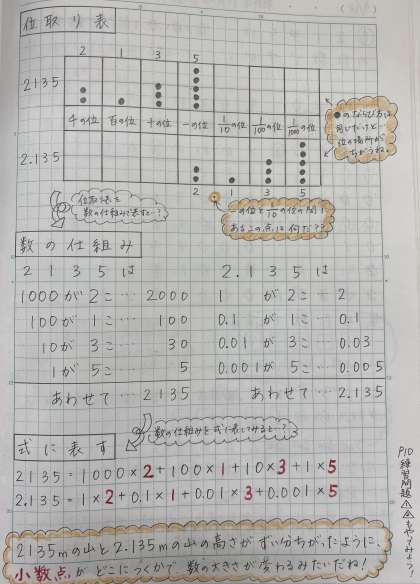 位取り表
2 1 3 5
2135
千の位 百の位 十の位 一の位 1/10の位 1/100の位 1/1000の位
2.135
2 1 3 5
●のならび方は
同じだけど
位の場所が
ちがうね。
位取り表を
数の仕組みで表すと…?
一の位と1/10の位の間に
あるこの点は何だ??
数の仕組み
2 1 3 5 は
1000が 2こ … 2000
100が 1こ … 100
10が 3こ … 30
1が 5こ … 5
あわせて … 2135
2.1 3 5 は
1 が 2こ … 2
0.1 が 1こ … 0.1
0.01 が 3こ … 0.03
0.001 が 5こ … 0.005
あわせて … 2.135
数の仕組みを式で表してみると…?
式に表す
2135 = 1000×2+100×1+10×3+1×5
2.135 = 1×2+0.1×1+0.01×3+0.001×5
P10
練習問題
もやってみよう
2135mの山と2.135mの山の高さがずい分ちがったように、
小数点がどこにつくかで数の大きさが変わるみたいだね!